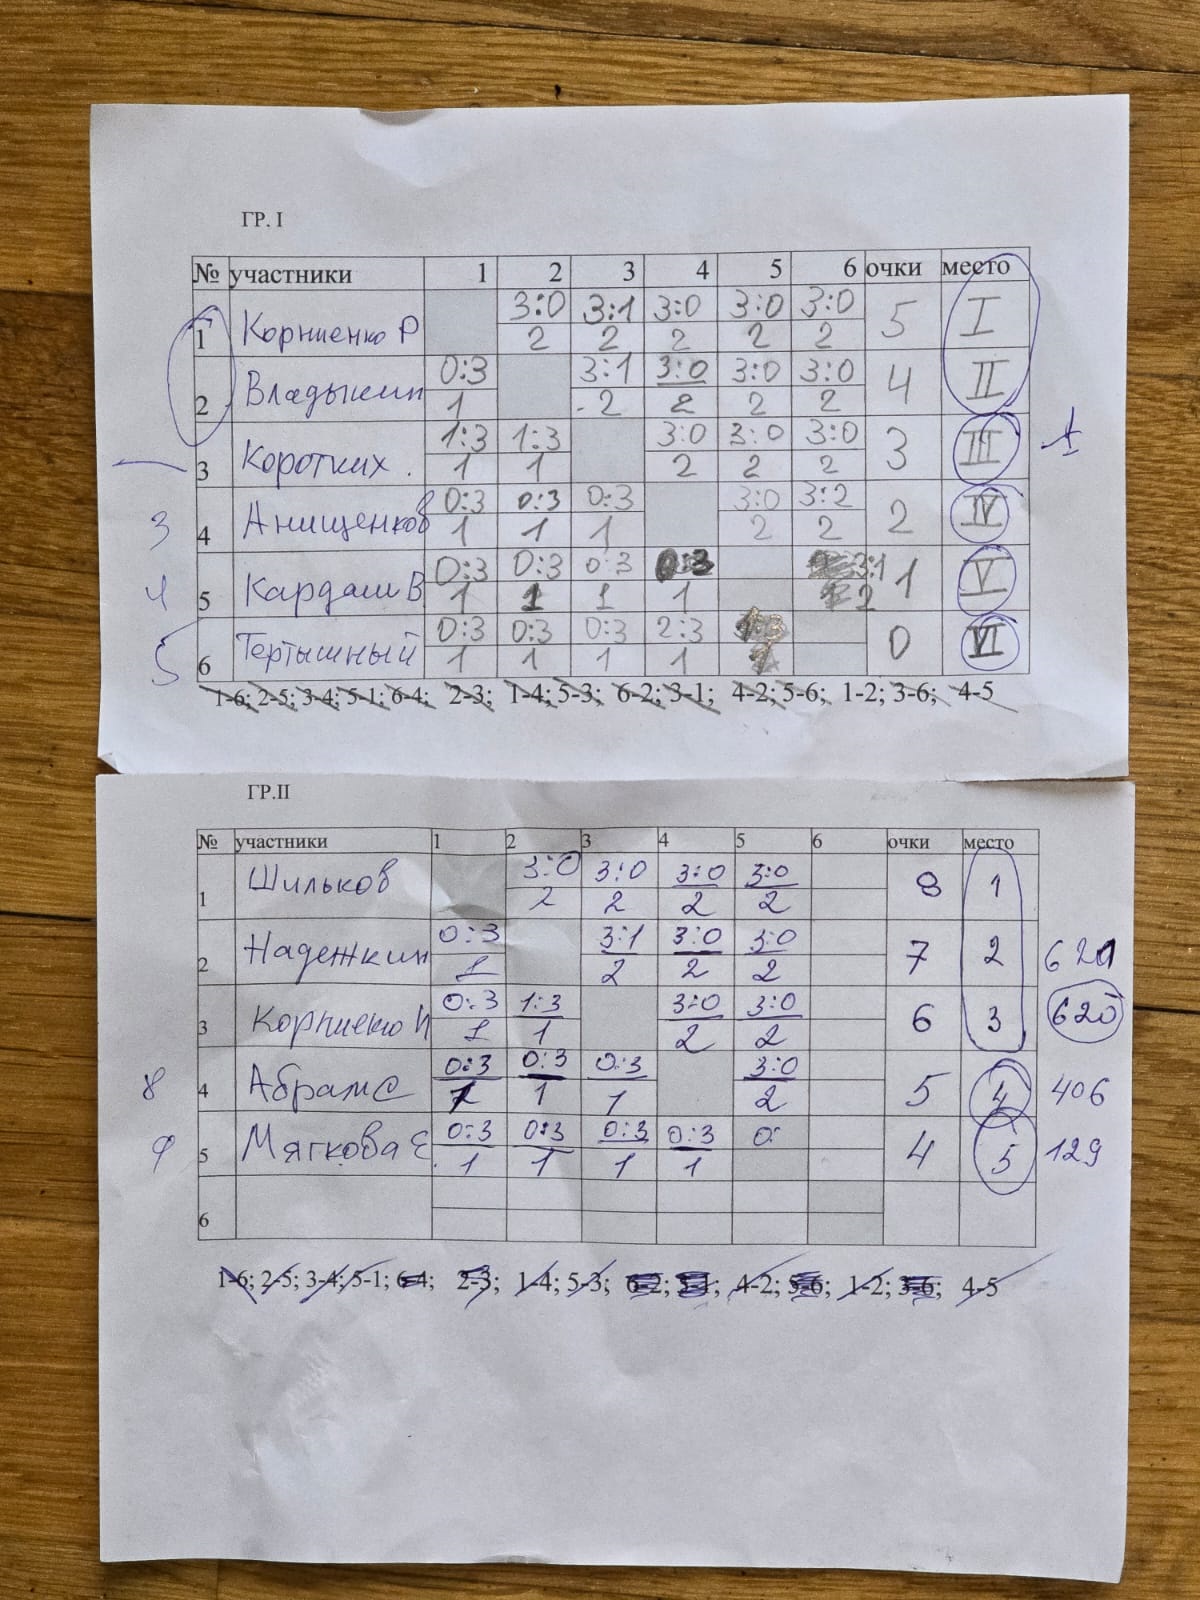 ГР. I
№ участники 1 2 3 4 5 6 очки место
3:0 3:1 3:0 3:0 3:0
1 Корниенко Р 2 2 2 2 2 5 I
0:3 3:1 3:0 3:0 3:0
2 Владыкин 1 2 2 2 2 4 II
1:3 1:3 3:0 3:0 3:0
3 Коротких . 1 1 2 2 2 3 III
0:3 0:3 0:3 3:0 3:2
3 4 Анищенков 1 1 1 2 2 2 IV
0:3 0:3 0:3 0:3 3:1
4 5 Кардаш В 1 1 1 1 2 1 V
0:3 0:3 0:3 2:3 1:3
5 6 Тертышный 1 1 1 1 1 0 VI
1-6; 2-5; 3-4; 5-1; 6-4; 2-3; 1-4; 5-3; 6-2; 3-1; 4-2; 5-6; 1-2; 3-6; 4-5
ГР.II
№ участники 1 2 3 4 5 6 очки место
3:0 3:0 3:0 3:0
1 Шильков 2 2 2 2 8 1
0:3 3:1 3:0 3:0
2 Надежкин 1 2 2 2 7 2
0:3 1:3 3:0 3:0
3 Корниенко И 1 1 2 2 6 3 620
0:3 0:3 0:3 3:0
8 4 Абрам 1 1 1 2 5 4 406
0:3 0:3 0:3 0:3 0:
9 5 Мягкова Е 1 1 1 1 4 5 129
6
1-6; 2-5; 3-4; 5-1; 6-4; 2-3; 1-4; 5-3; 6-2; 3-1; 4-2; 5-6; 1-2; 3-6; 4-5